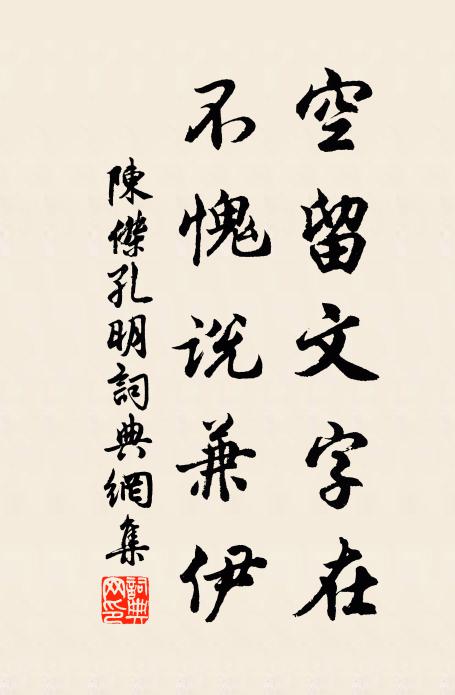 空留文字在
不愧説兼伊
陳傑孔明詞典網集
詞典網印